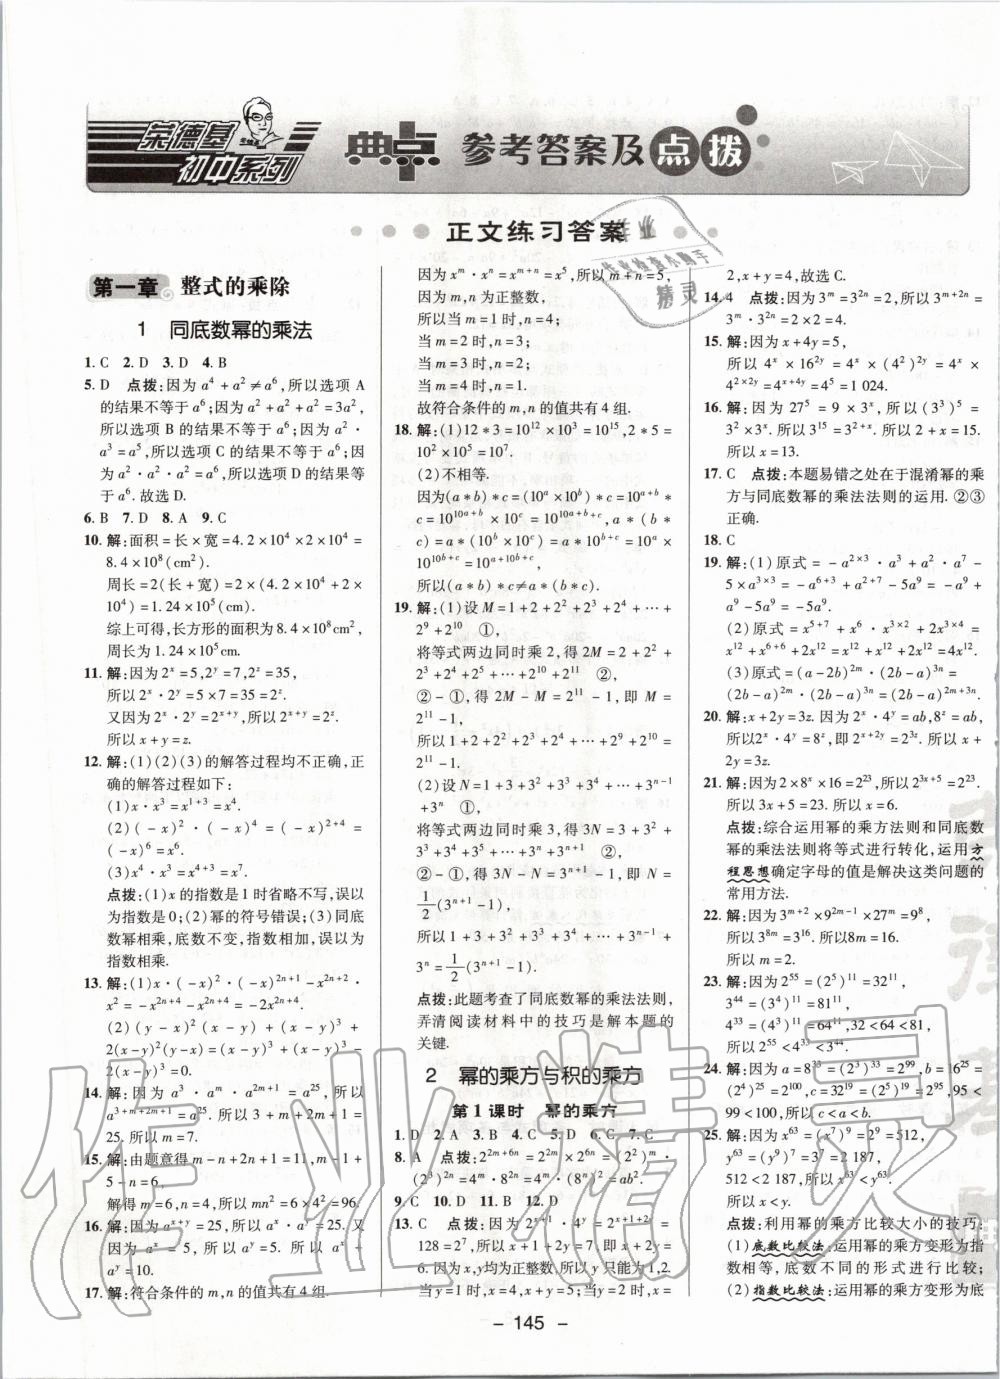 荣德基
初中系列
典点 参考答案及点拨
正文练习答案
第一章 整式的乘除
1 同底数幂的乘法
1. C 2. D 3. D 4. B
5. D 点拨:因为 a⁴+a²≠a⁶,所以选项 A
的结果不等于 a⁶;因为 a²+a²+a²=3a²,
所以选项 B 的结果不等于 a⁶;因为 a²·
a³=a⁵,所以选项 C 的结果不等于 a⁶;因
为 a²·a²·a²=a⁶,所以选项 D 的结果等
于 a⁶.故选 D.
6. B 7. D 8. A 9. C
10. 解:面积=长×宽=4.2×10⁴×2×10⁴=
8.4×10⁸(cm²).
周长=2(长+宽)=2(4.2×10⁴+2×
10⁴)=1.24×10⁵(cm).
综上可得,长方形的面积为8.4×10⁸cm²,
周长为1.24×10⁵cm.
11. 解:因为2ˣ=5,2ʸ=7,2ᶻ=35,
所以2ˣ·2ʸ=5×7=35=2ᶻ.
又因为2ˣ·2ʸ=2ˣ⁺ʸ,所以2ˣ⁺ʸ=2ᶻ.
所以 x+y=z.
12. 解:(1)(2)(3)的解答过程均不正确,正
确的解答过程如下:
(1)x·x³=x¹⁺³=x⁴.
(2)(-x)²·(-x)⁴=(-x)²⁺⁴=
(-x)⁶=x⁶.
(3)x⁴·x³=x⁴⁺³=x⁷.
点拨:(1)x的指数是1时省略不写,误以
为指数是0;(2)幂的符号错误;(3)同底
数幂相乘,底数不变,指数相加,误以为
指数相乘.
13. 解:(1)x·(-x)²·(-x)²ⁿ⁺¹-x²ⁿ⁺²·
x²=-x²ⁿ⁺⁴-x²ⁿ⁺⁴=-2x²ⁿ⁺⁴.
(2)(y-x)²(x-y)+(x-y)³+
2(x-y)²(y-x)=(x-y)³+(x-y)³-
2(x-y)³=0.
14. 解:因为a³·aᵐ·a²ᵐ⁺¹=a²⁵,所以
a³⁺ᵐ⁺²ᵐ⁺¹=a²⁵.所以3+m+2m+1=
25.所以m=7.
15. 解:由题意得m-n+2n+1=11,m-1+
5-n=6,
解得m=6,n=4,所以mn²=6×4²=96.
16. 解:因为aˣ⁺ʸ=25,所以aˣ·aʸ=25.又
因为aˣ=5,所以aʸ=5.所以aˣ+
aʸ=10.
17. 解:符合条件的m,n的值共有4组.
因为xᵐ·xⁿ=xᵐ⁺ⁿ=x⁵,所以m+n=5.
因为m,n为正整数,
所以当m=1时,n=4;
当m=2时,n=3;
当m=3时,n=2;
当m=4时,n=1.
故符合条件的m,n的值共有4组.
18. 解:(1)12*3=10¹²×10³=10¹⁵,2*5=
10²×10⁵=10⁷.
(2)不相等.
因为(a*b)*c=(10ᵃ×10ᵇ)*c=10ᵃ⁺ᵇ*
c=10^(10^(a+b))×10ᶜ=10^(10^(a+b)+c),a*(b*
c)=a*(10ᵇ×10ᶜ)=a*10ᵇ⁺ᶜ=10ᵃ×
10^(10^(b+c))=10^(a+10^(b+c)),
所以(a*b)*c≠a*(b*c).
19. 解:(1)设M=1+2+2²+2³+2⁴+…+
2⁹+2¹⁰ ①,
将等式两边同时乘2,得2M=2+2²+
2³+2⁴+2⁵+…+2¹⁰+2¹¹ ②,
②-①,得2M-M=2¹¹-1,即M=
2¹¹-1,
所以1+2+2²+2³+2⁴+…+2⁹+2¹⁰=
2¹¹-1.
(2)设N=1+3+3²+3³+3⁴+…+3ⁿ⁻¹
+3ⁿ ①,
将等式两边同时乘3,得3N=3+3²+
3³+3⁴+3⁵+…+3ⁿ+3ⁿ⁺¹ ②,
②-①,得3N-N=3ⁿ⁺¹-1,即N=
1/2(3ⁿ⁺¹-1),
所以1+3+3²+3³+3⁴+…+3ⁿ⁻¹+
3ⁿ=1/2(3ⁿ⁺¹-1).
点拨:此题考查了同底数幂的乘法法则,
弄清阅读材料中的技巧是解本题的
关键.
2 幂的乘方与积的乘方
第1课时 幂的乘方
1. D 2. A 3. B 4. C 5. D 6. C 7. C
8. A 点拨:2²ᵐ⁺⁶ⁿ=2²ᵐ×2⁶ⁿ=(2²)ᵐ·
(2³)²ⁿ=4ᵐ·8²ⁿ=4ᵐ·(8ⁿ)²=ab².
9. C 10. D 11. B 12. D
13. C 点拨:因为2ˣ⁺¹·4ʸ=2ˣ⁺¹⁺²ʸ=
128=2⁷,所以x+1+2y=7,即x+2y=
6.因为x,y均为正整数,所以y只能为1,2.
当y=1时,x=4,x+y=5;当y=2时,x=
2,x+y=4,故选C.
14. 4 点拨:因为3ᵐ=3ⁿ=2,所以3ᵐ⁺²ⁿ=
3ᵐ·3²ⁿ=2×2²... 
15. 解:因为x+4y=5,
所以4ˣ×16²ʸ=4ˣ×(4²)²ʸ=4ˣ×
4²ˣ²ʸ=4ˣ⁺⁴ʸ=4⁵=1 024.
16. 解:因为27⁵=9×3ˣ,所以(3³)⁵=
3²×3ˣ.所以3¹⁵=3²⁺ˣ.所以2+x=15.
所以x=13.
17. C 点拨:本题易错之处在于混淆幂的乘
方与同底数幂的乘法法则的运用.②③
正确.
18. C
19. 解:(1)原式=-a²ˣ³·a³+a²·a⁷-
5×a³ˣ³=-a⁶⁺³+a²⁺⁷-5a⁹=-a⁹+
a⁹-5a⁹=-5a⁹.
(2)原式=x⁵⁺⁷+x⁶·x³ˣ²+2x³ˣ⁴=
x¹²+x⁶⁺⁶+2x¹²=x¹²+x¹²+2x¹²=4x¹².
(3)原式=(a-2b)²ᵐ·(2b-a)³ⁿ=
(2b-a)²ᵐ·(2b-a)³ⁿ=(2b-a)²ᵐ⁺³ⁿ.
20. 解:x+2y=3z.因为2ˣ·4ʸ=ab,8ᶻ=ab,
所以2ˣ·4ʸ=8ᶻ,即2ˣ⁺²ʸ=2³ᶻ.所以x+
2y=3z.
21. 解:因为2×8ˣ×16=2²³,所以2³ˣ⁺⁵=2²³.
所以3x+5=23.所以x=6.
点拨:综合运用幂的乘方法则和同底数
幂的乘法法则将等式进行转化,运用方
程思想确定字母的值是解决这类问题的
常用方法.
22. 解:因为3ᵐ⁺²×9²ᵐ⁻¹×27ᵐ=9⁸,
所以3⁸ᵐ=3¹⁶.所以8m=16.
所以m=2.
23. 解:因为2⁵⁵=(2⁵)¹¹=32¹¹,
3⁴⁴=(3⁴)¹¹=81¹¹,
4³³=(4³)¹¹=64¹¹,32<64<81,
所以2⁵⁵<4³³<3⁴⁴.
24. 解:因为a=8³³=(2³)³³=2⁹⁹,b=16²⁵
=(2⁴)²⁵=2¹⁰⁰,c=32¹⁹=(2⁵)¹⁹=2⁹⁵,95
<99<100,所以c<a<b.
25. 解:因为x⁶³=(x⁷)⁹=2⁹=512,
y⁶³=(y⁹)⁷=3⁷=2 187,
512<2 187,所以x⁶³<y⁶³,所以
x<y.
点拨:利用幂的乘方比较大小的技巧:
(1)底数比较法:运用幂的乘方变形为指
数相等,底数不同的形式进行比较;
(2)指数比较法:运用幂的乘方变形为底
- 145 -
作业精灵